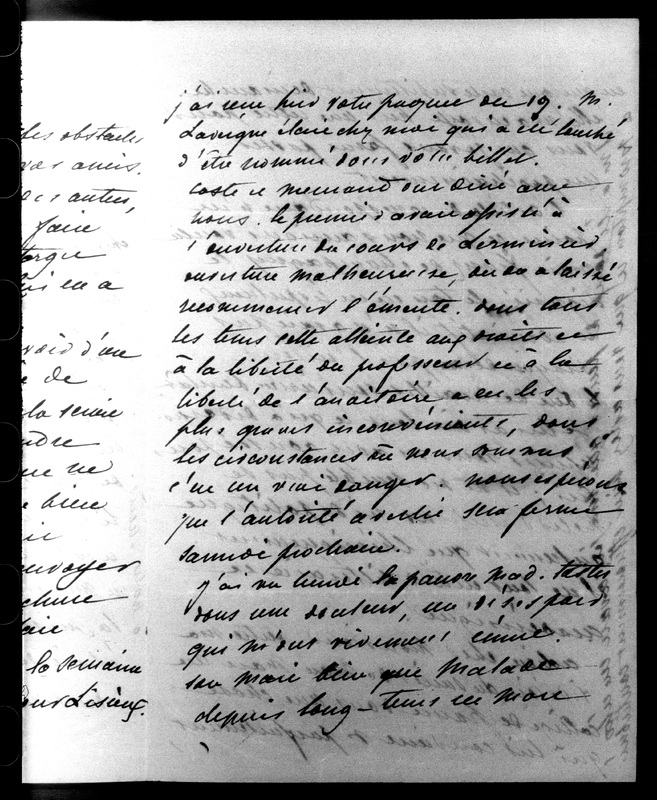 les obstacles
vos amis.
des autres,
faire
qui en a
d'un
de
la seine
ne
bien
envoyer
la semaine
pour Lisieux.
j'ai reçu hier votre paquet du 19. M.
Lavergne était chez moi qui a été touché
d'être nommé dans votre billet.
Coste et Menand ont diné avec
nous. le premier avait assisté à
l'ouverture du cours de Lerminier,
ouverture malheureuse, où on a laissé
recommencer l'émeute. dans tous
les tems cette atteinte aux droits et
à la liberté du professeur et à la
liberté de l'auditoire a eu les
plus graves inconvénients, dans
les circonstances où nous sommes
c'est un vrai danger. nous espérons
que l'autorité avertie sera ferme
samedi prochain.
j'ai vu lundi la pauvre Mad. Tastu
dans une douleur, un désespoir
qui m'ont vivement ému.
son mari bien que malade
depuis long-tems est mort